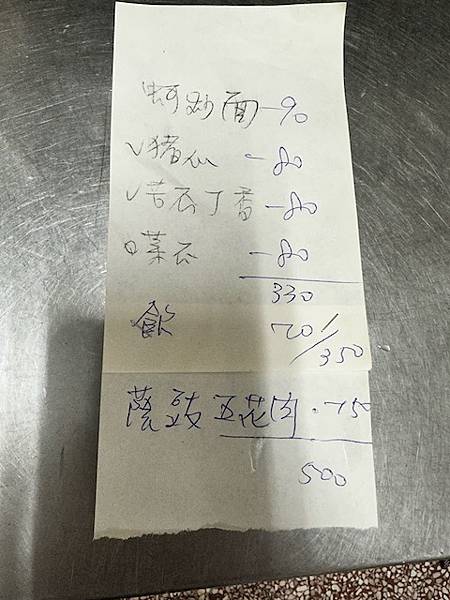 蚵炒面-90
✓猪心 -80
✓苦瓜丁香-80
菜瓜 -80
330
飲 20/350
蔭豉五花肉.150
500